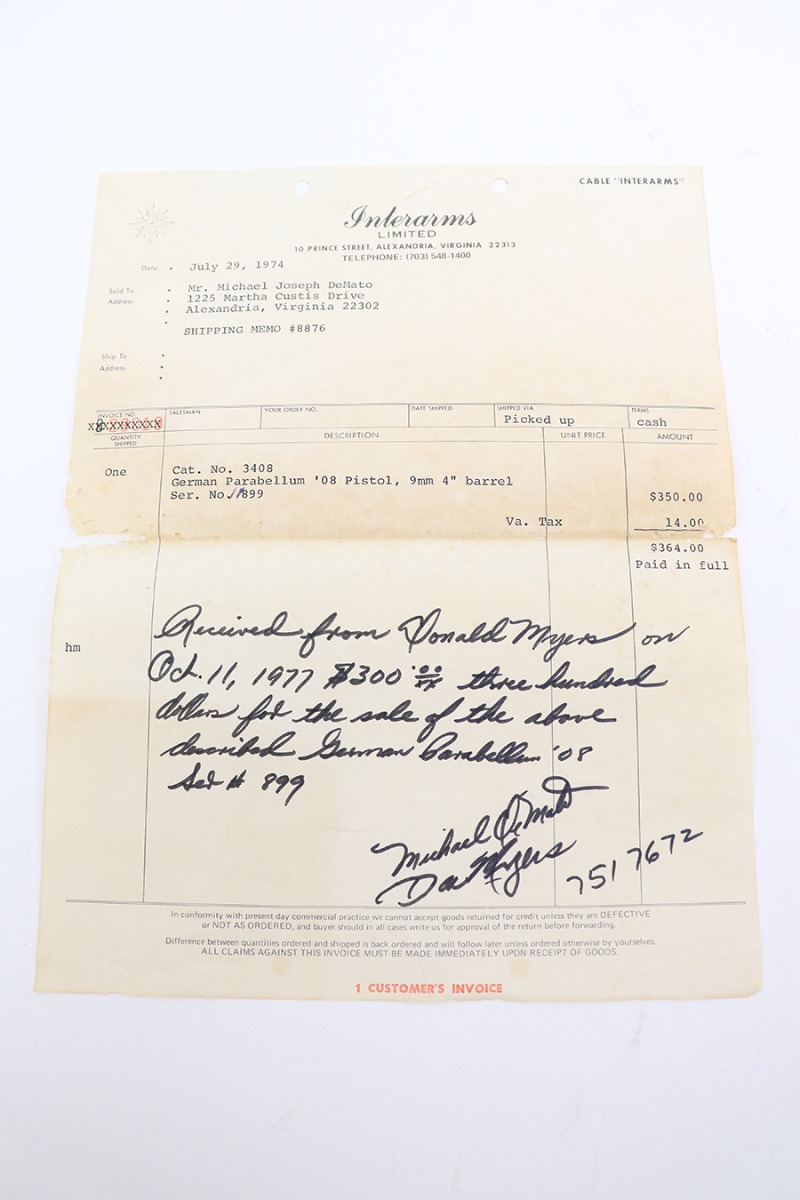 CABLE "INTERARMS"
Interarms
LIMITED
10 PRINCE STREET, ALEXANDRIA, VIRGINIA 22313
TELEPHONE: (703) 548-1400
Date . July 29, 1974
Sold To . Mr. Michael Joseph DeMato
Address . 1225 Martha Custis Drive
. Alexandria, Virginia 22302
SHIPPING MEMO #8876
Ship To
Address
INVOICE NO. SALESMAN YOUR ORDER NO. DATE SHIPPED SHIPPED VIA TERMS
Picked up cash
QUANTITY SHIPPED DESCRIPTION UNIT PRICE AMOUNT
One Cat. No. 3408
German Parabellum '08 Pistol, 9mm 4" barrel
Ser. No. 899 $350.00
Va. Tax 14.00
$364.00
Paid in full
hm
Received from Donald Myers on
Oct. 11, 1977 $300 00/xx three hundred
dollars for the sale of the above
described German Parabellum '08
Ser # 899
Michael DeMato
Don Myers 751 7672
In conformity with present day commercial practice we cannot accept goods returned for credit unless they are DEFECTIVE
or NOT AS ORDERED, and buyer should in all cases write us for approval of the return before forwarding.
Difference between quantities ordered and shipped is back ordered and will follow later unless ordered otherwise by yourselves.
ALL CLAIMS AGAINST THIS INVOICE MUST BE MADE IMMEDIATELY UPON RECEIPT OF GOODS.
1 CUSTOMER'S INVOICE